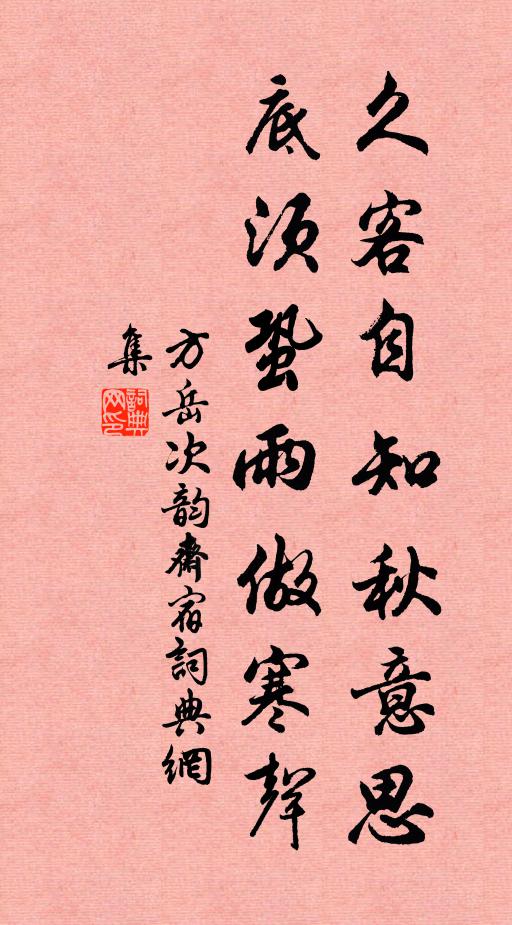 久客自知秋意思
底須蛩雨做寒聲
方岳次韵齋宿詞典網
集
詞典
网印